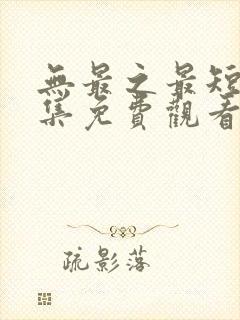 無最之最短
集免費觀看
疏影落